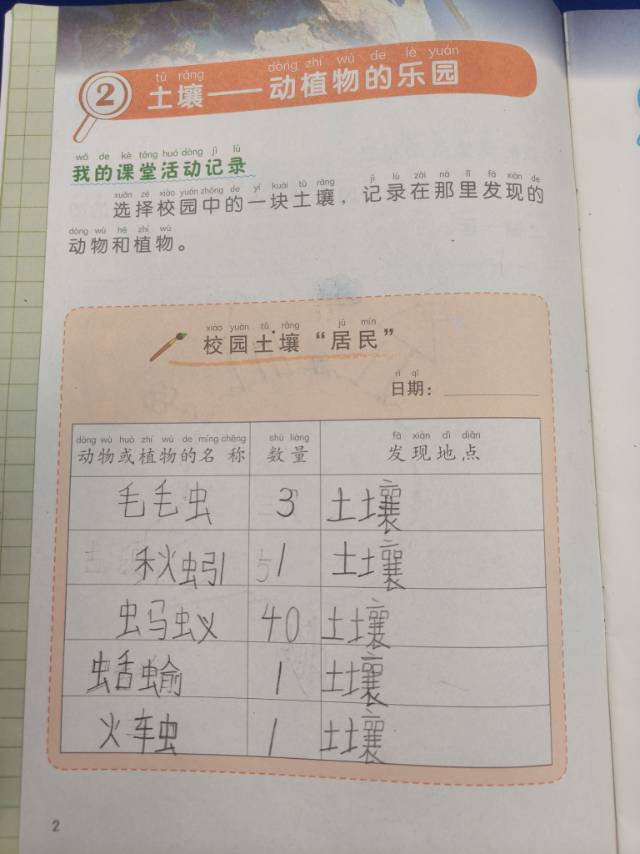 tǔ rǎng dòng zhí wù de lè yuán
2 土壤——动植物的乐园
wǒ de kè táng huó dòng jì lù
我的课堂活动记录
xuǎn zé xiào yuán zhōng de yí kuài tǔ rǎng jì lù zài nà lǐ fā xiàn de
选择校园中的一块土壤，记录在那里发现的
dòng wù hé zhí wù
动物和植物。
xiào yuán tǔ rǎng jū mín
校园土壤“居民”
rì qī
日期：
dòng wù huò zhí wù de míng chēng shù liàng fā xiàn dì diǎn
动物或植物的名称 数量 发现地点
毛毛虫 3 土壤
秋蚓 1 土壤
虫马蚁 40 土壤
蛞蝓 1 土壤
火车虫 1 土壤
2